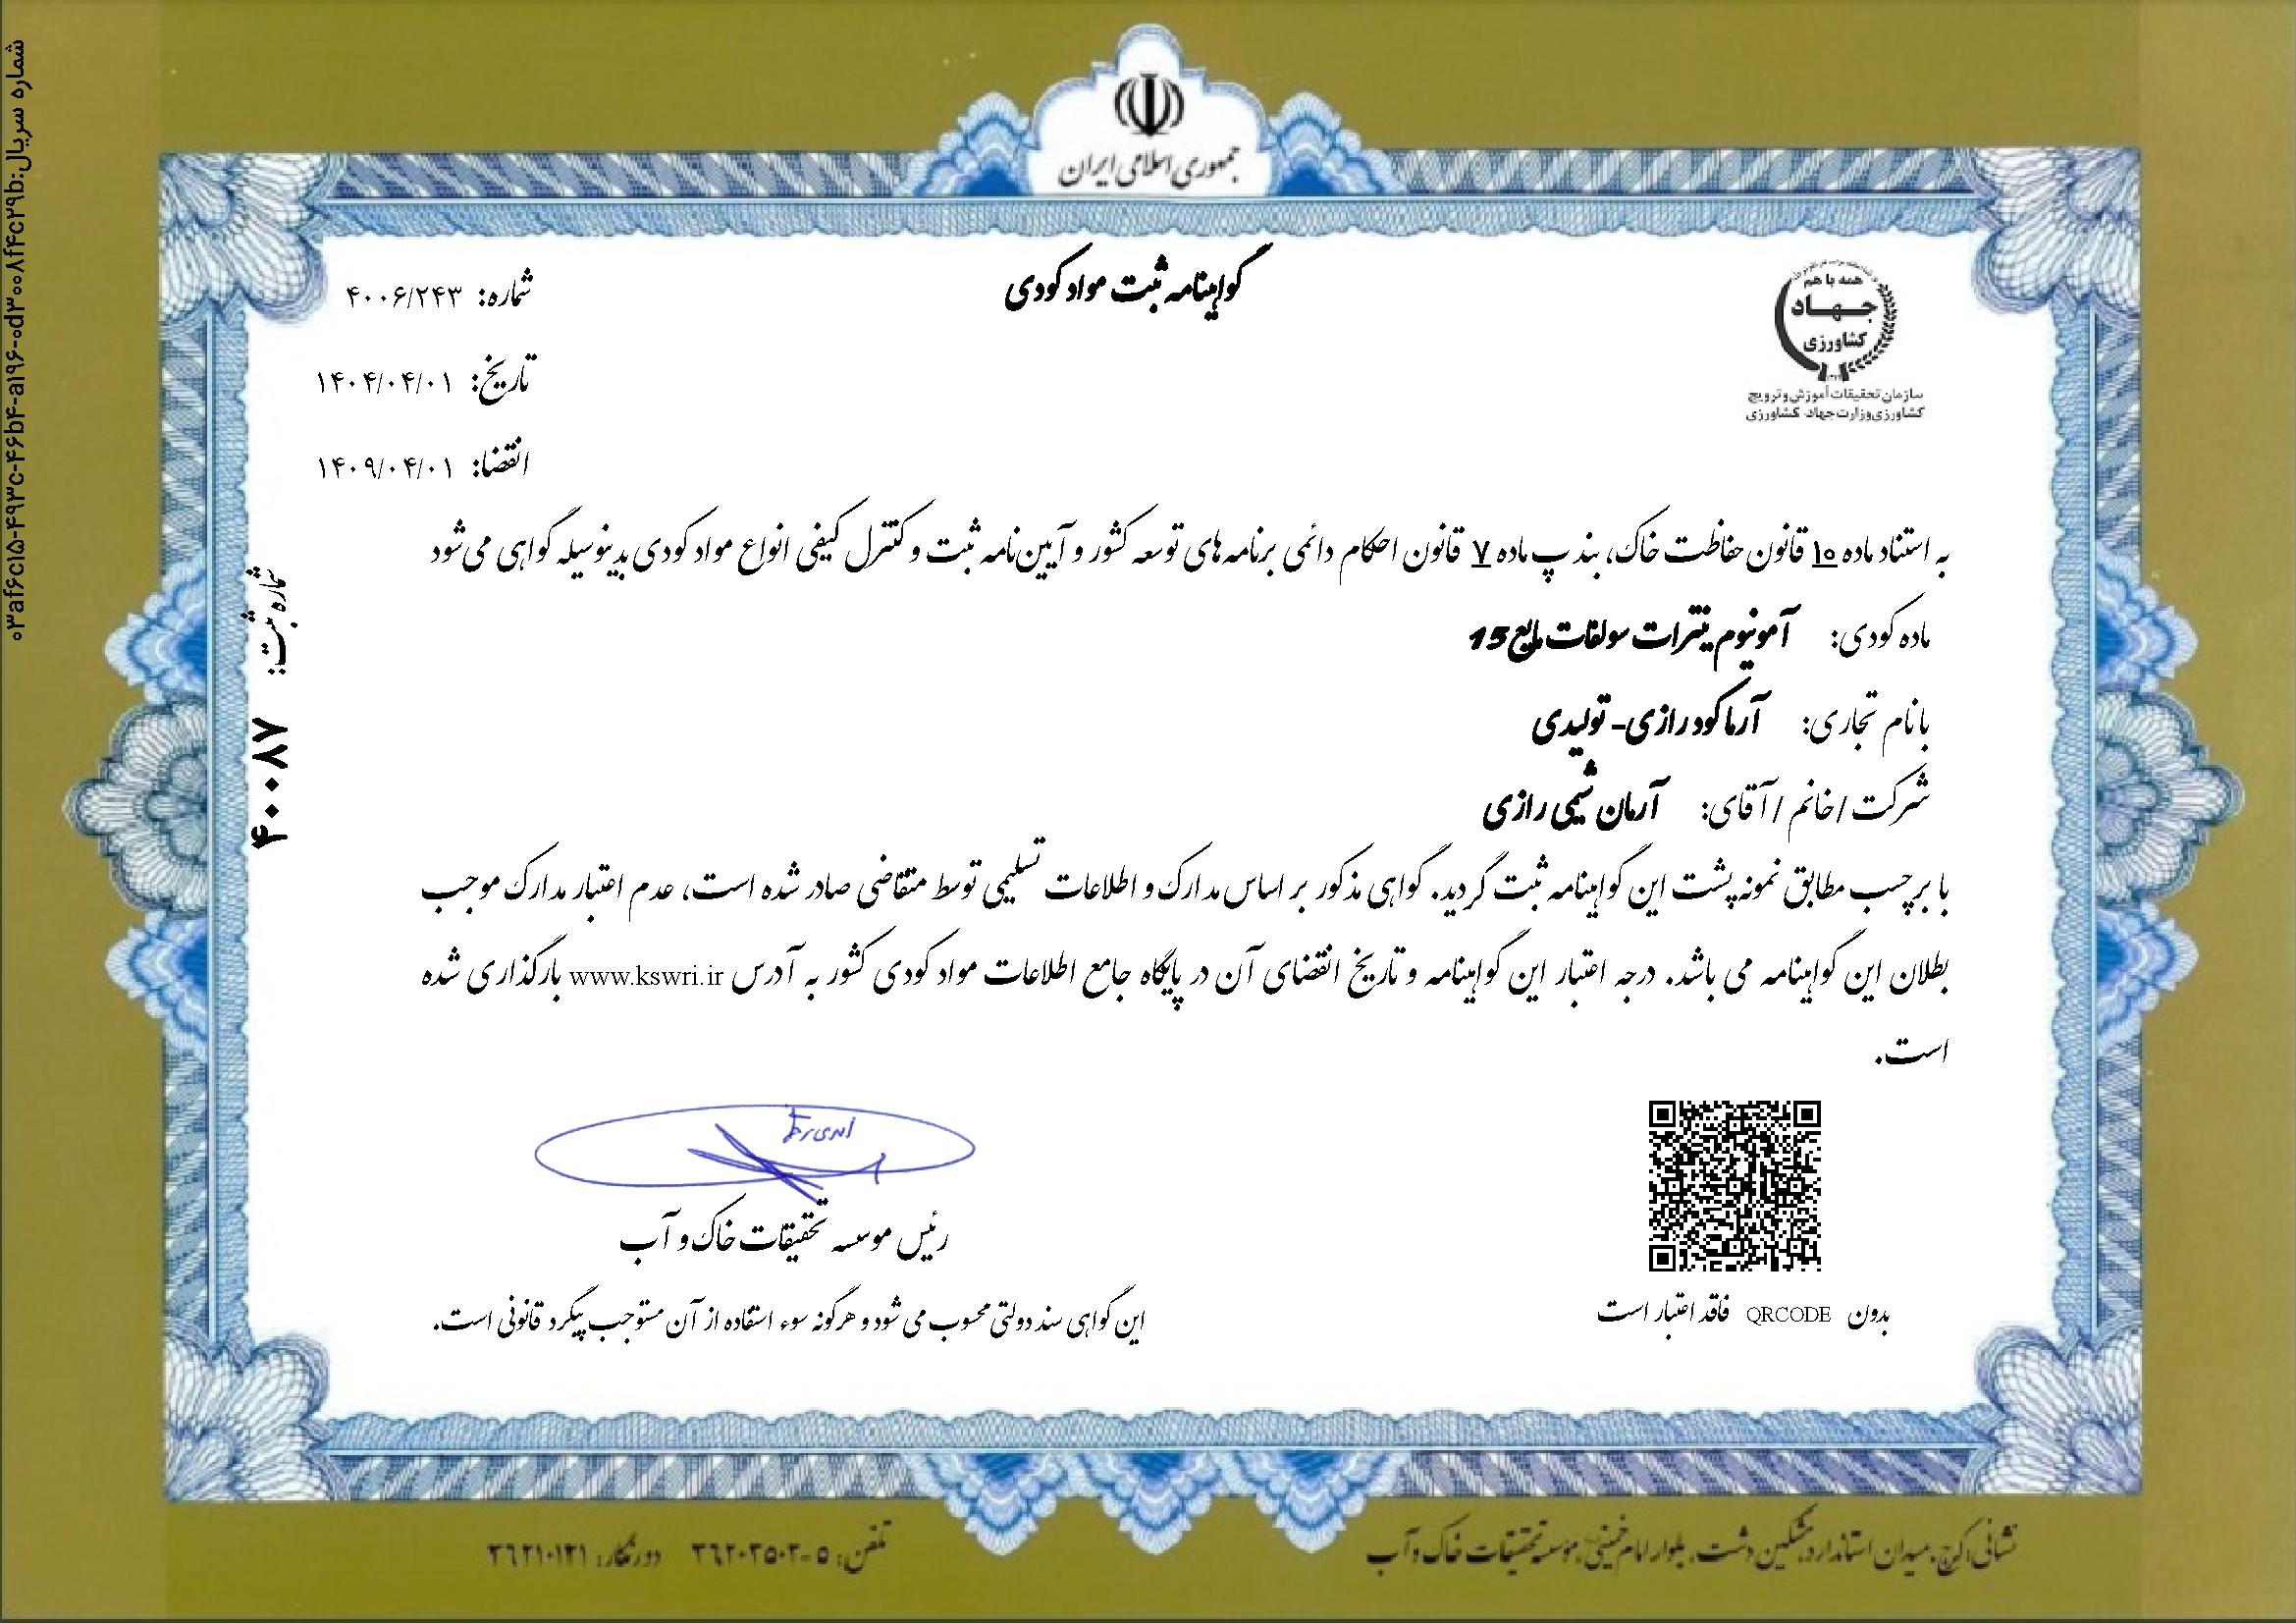 شماره سریال:۰۳af۶c۱۵-۴۹۳c-۴۶b۴-a۱۹۶-۰d۳۰۰۸f۴c۲۹b
جمهوری اسلامی ایران
همه با هم
جهاد
کشاورزی
سازمان تحقیقات آموزش و ترویج
کشاورزی وزارت جهاد کشاورزی
گواهینامه ثبت مواد کودی
شماره: ۴۰۰۶/۲۴۳
تاریخ: ۱۴۰۴/۰۴/۰۱
انقضا: ۱۴۰۹/۰۴/۰۱
شماره ثبت: ۴۰۰۸۷
به استناد ماده ۱۰ قانون حفاظت خاک، بند پ ماده ۷ قانون احکام دائمی برنامه های توسعه کشور و آیین نامه ثبت و کنترل کیفی انواع مواد کودی بدینوسیله گواهی می شود
ماده کودی: آمونیوم نیترات سولفات مایع 15
با نام تجاری: آرما کود رازی- تولیدی
شرکت / خانم / آقای: آرمان شیمی رازی
با برچسب مطابق نمونه پشت این گواهینامه ثبت گردید. گواهی مذکور بر اساس مدارک و اطلاعات تسلیمی توسط متقاضی صادر شده است، عدم اعتبار مدارک موجب
بطلان این گواهینامه می باشد. درجه اعتبار این گواهینامه و تاریخ انقضای آن در پایگاه جامع اطلاعات مواد کودی کشور به آدرس www.kswri.ir بارگذاری شده
است.
رئیس موسسه تحقیقات خاک و آب
این گواهی سند دولتی محسوب می شود و هرگونه سوء استفاده از آن مستوجب پیگرد قانونی است.
بدون QRCODE فاقد اعتبار است
نشانی: کرج، میدان استاندارد، مشکین دشت، بلوار امام خمینی، موسسه تحقیقات خاک و آب
تلفن: ۵-۳۶۲۰۲۵۰۲ دورنگار: ۳۶۲۱۰۱۲۱